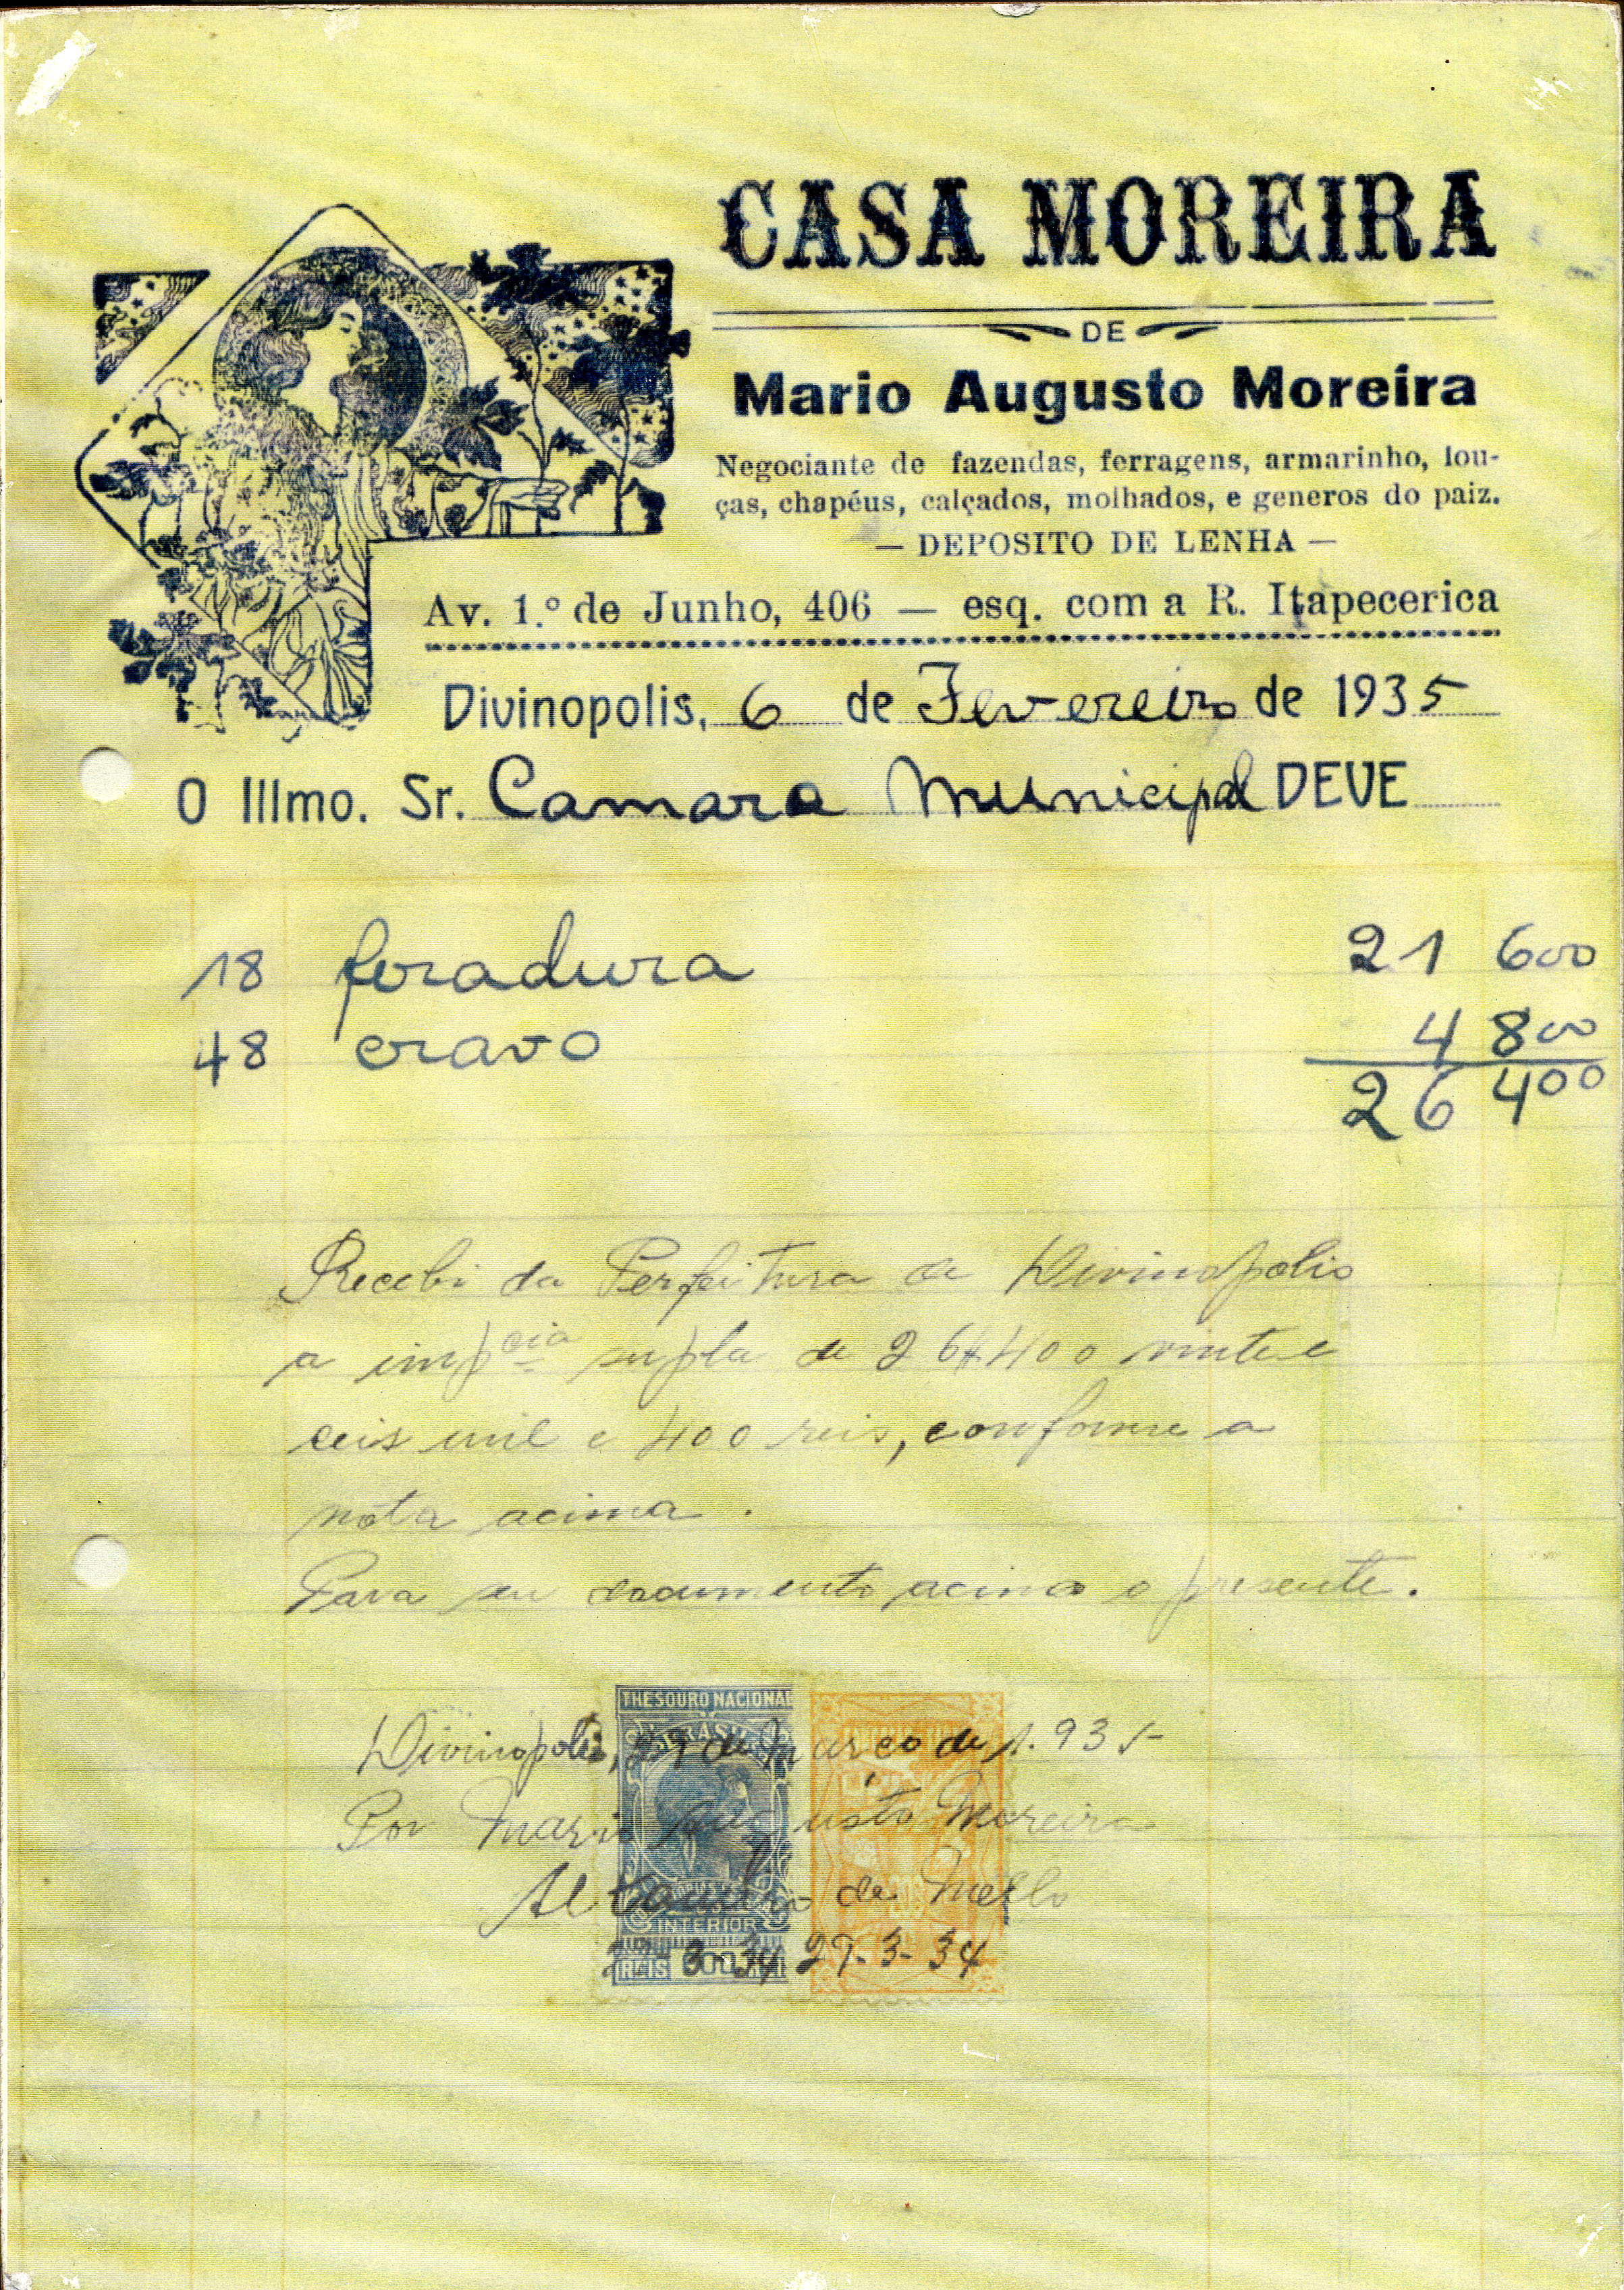 CASA MOREIRA
DE
Mario Augusto Moreira
Negociante de fazendas, ferragens, armarinho, lou-
ças, chapéus, calçados, molhados, e generos do paiz.
— DEPOSITO DE LENHA —
Av. 1.º de Junho, 406 — esq. com a R. Itapecerica
Divinopolis, 6 de Fevereiro de 1935
O Illmo. Sr. Camara Municipal DEVE
18 feradura 21 600
48 cravo 4 800
26 400
Recebi da Perfeitura de Divinopolis
a impcia supla de 26$400 vinte e
ceis mil e 400 reis, conforme a
nota acima.
Para seu documento acino o presente.
THESOURO NACIONAL
Divinopolis, 29 de Março de 1.935
Por Mario Augusto Moreira
de Mello
INTERIOR
3-34 29-3-34
REIS